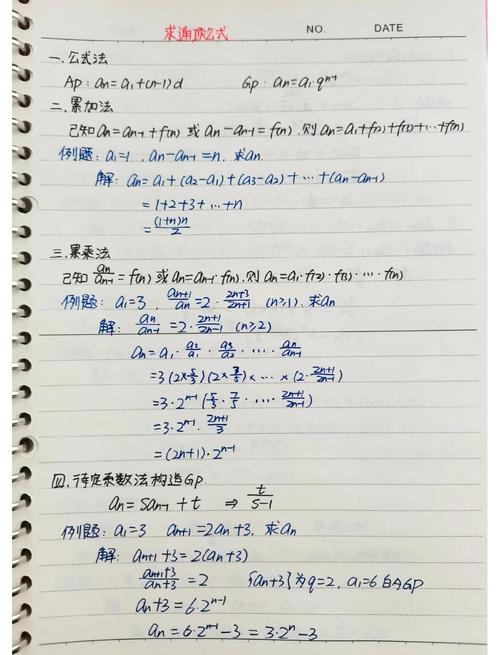 求通项公式 NO. DATE
一.公式法
AP: an=a₁+(n-1)d GP: an=a₁·qⁿ⁻¹
二.累加法
已知an=an-1+f(n) 或 an-an-1=f(n).则an=a₁+f(2)+f(3)+…+f(n)
例题: a₁=1, an-an-1=n. 求an.
解: an=a₁+(a₂-a₁)+(a₃-a₂)+…+(an-an-1)
=1+2+3+…+n
=(1+n)n/2
三.累乘法
已知 an/an-1=f(n) 或 an=an-1·f(n).则an=a₁·f(2)·f(3)·…·f(n)
例题: a₁=3. an+1/an=2·2n+3/2n+1 (n≥1).求an
解: an/an-1=2·2n+1/2n-1 (n≥2)
an=a₁·a₂/a₁·a₃/a₂·…·an/an-1
=3(2×5/3)(2×7/5)×…×(2·2n+1/2n-1)
=3·2ⁿ⁻¹(5/3·7/5·…·2n+1/2n-1)
=3·2ⁿ⁻¹·2n+1/3
=(2n+1)·2ⁿ⁻¹
四.待定系数法构造GP
an=San-1+t ⇒ t/S-1
例题: a₁=3 an+1=2an+3. 求an
解: an+1+3=2(an+3)
an+1+3/an+3=2 {an+3}为q=2, a₁=6的GP
an+3=6·2ⁿ⁻¹
an=6·2ⁿ⁻¹-3=3·2ⁿ-3